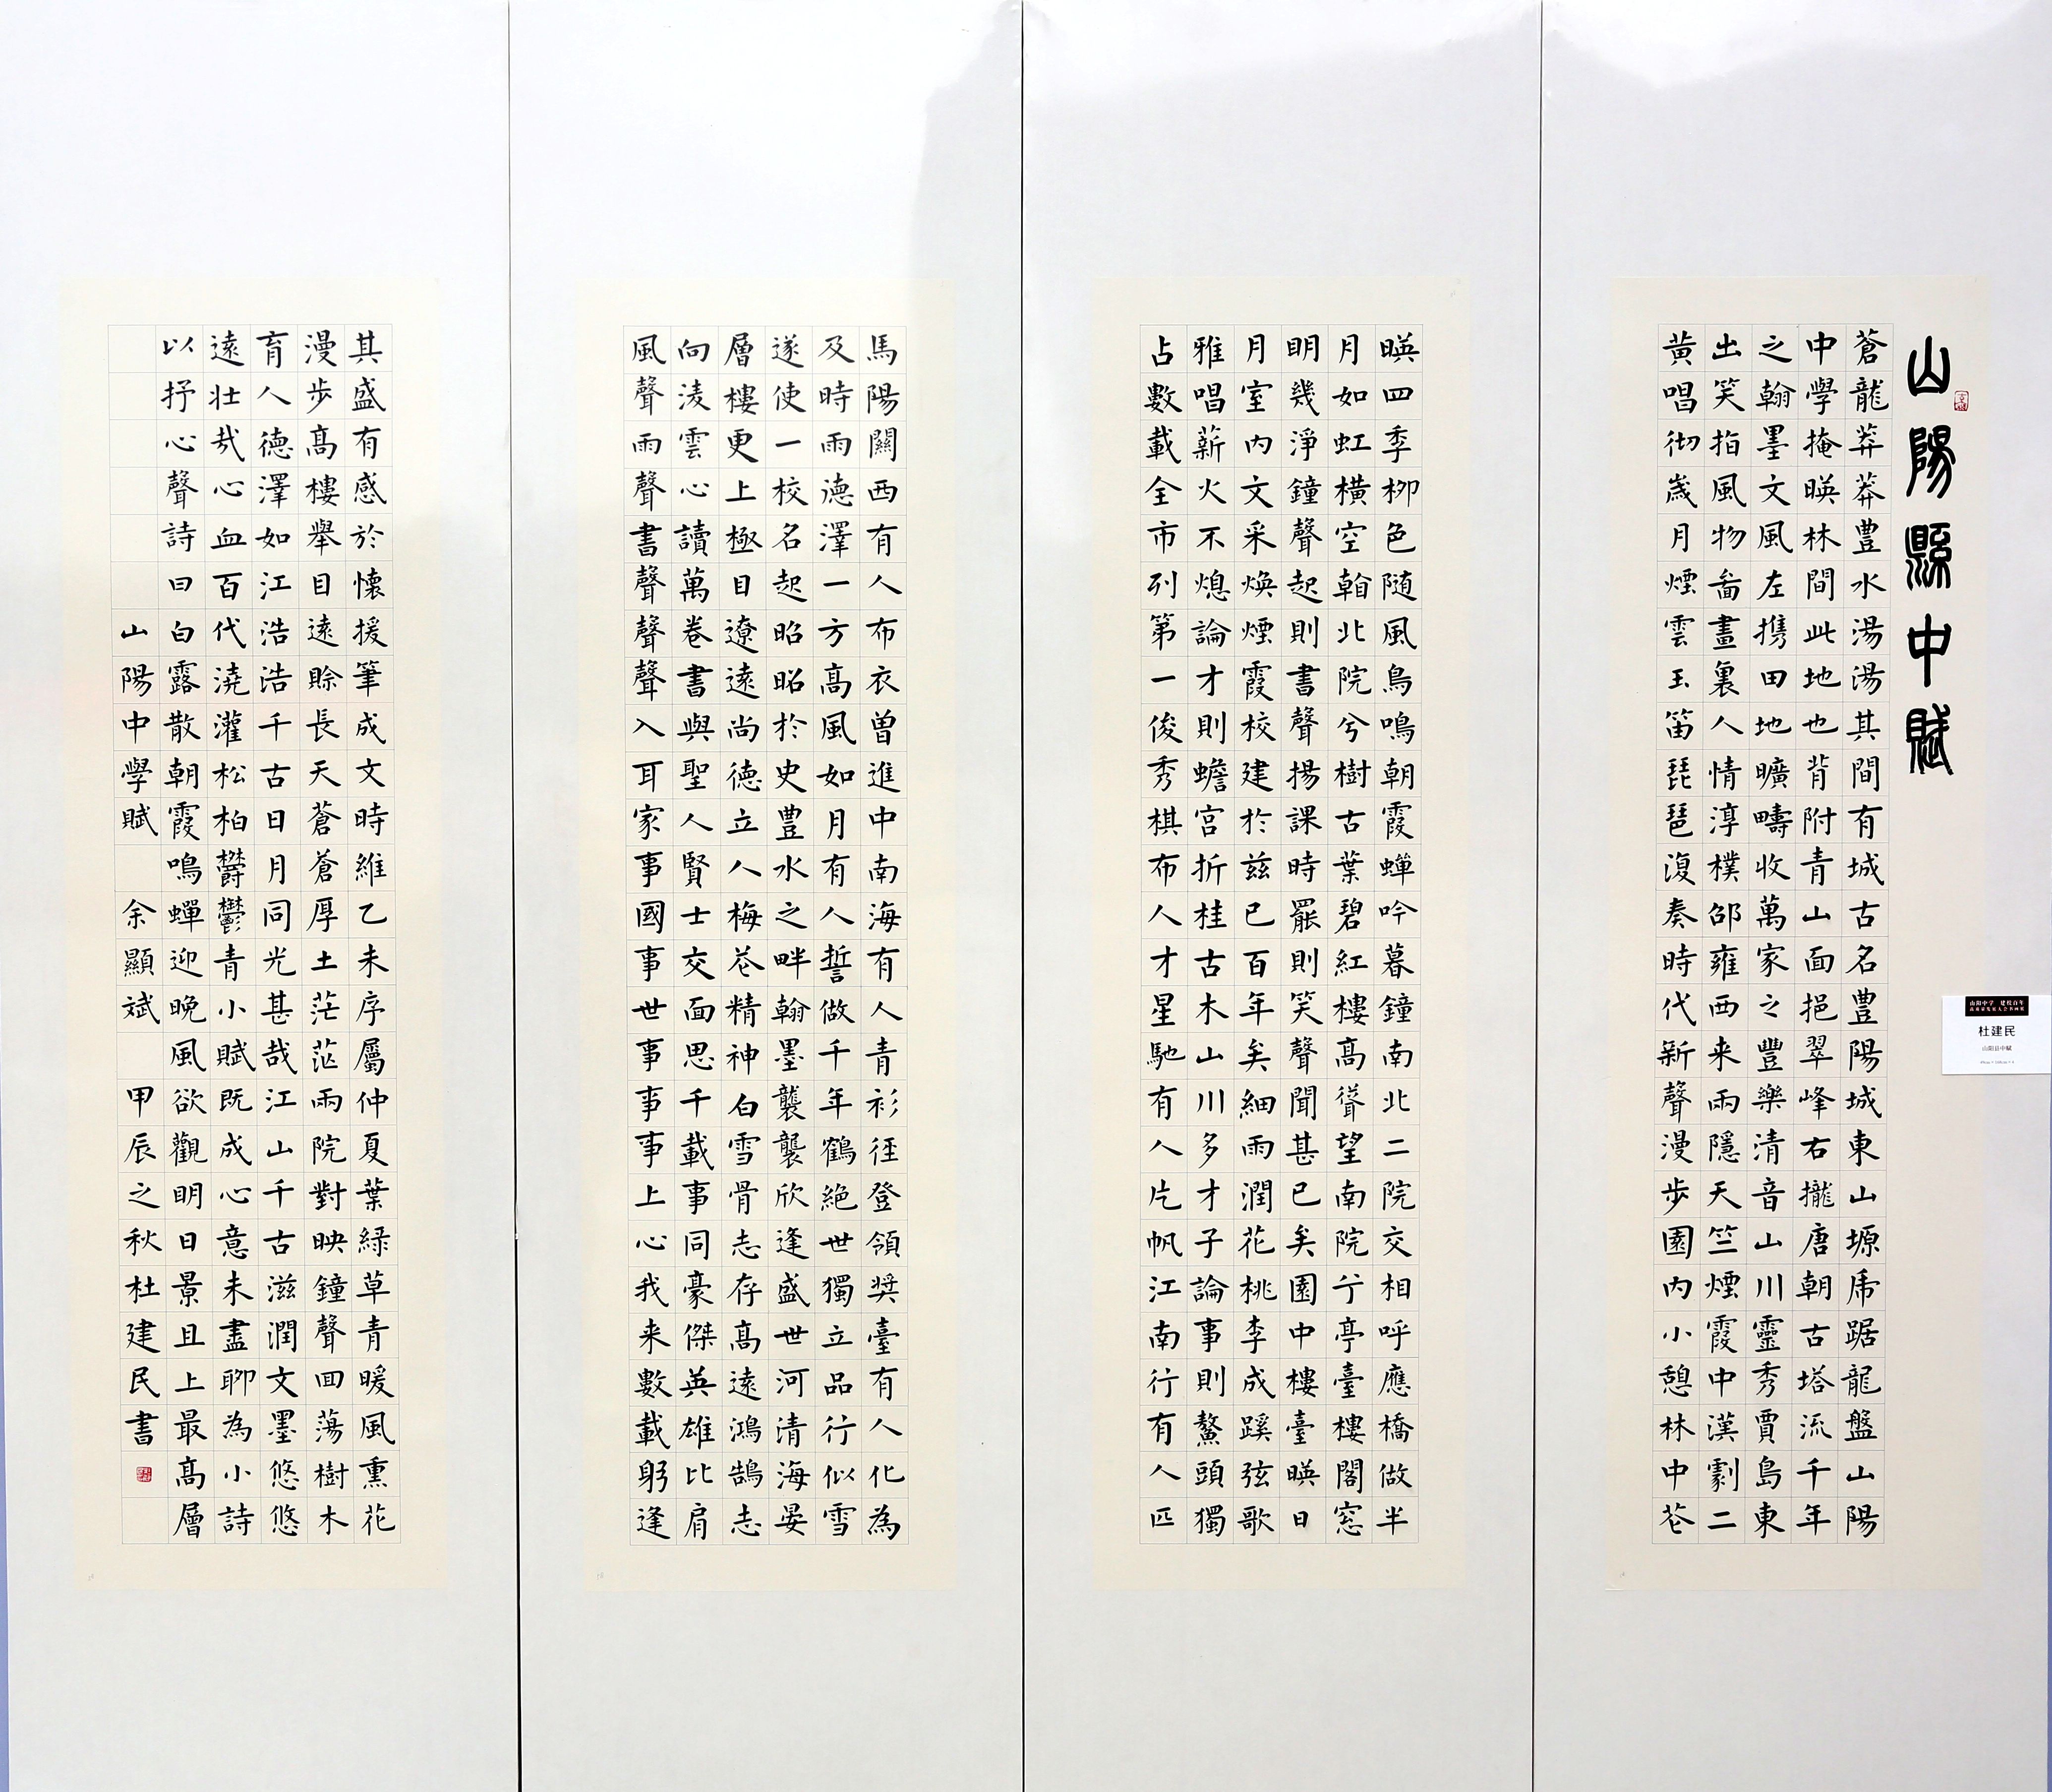 山陽縣中賦
蒼龍莽莽豊水湯湯其間有城古名豊陽城東山塬虎踞龍盤山陽
中學掩暎林間此地也背附青山面挹翠峰右攏唐朝古塔流千年
之翰墨文風左携田地曠疇收萬家之豐樂清音山川靈秀賈島東
出笑指風物啚畫裏人情淳樸邵雍西来雨隱天竺煙霞中漢劇二
黄唱彻歳月煙雲玉笛琵琶復奏時代新聲漫步園内小憩林中芲
暎四季柳色随風鳥鳴朝霞蟬吟暮鐘南北二院交相呼應橋做半
月如虹橫空翰北院兮樹古葉碧紅樓高聳望南院兮亭臺樓閣窓
明幾淨鐘聲起則書聲揚課時罷則笑聲聞甚已矣園中樓臺暎日
月室内文采焕煙霞校建於兹已百年矣細雨潤花桃李成蹊弦歌
雅唱薪火不熄論才則蟾宫折桂古木山川多才子論事則鰲頭獨
占數載全市列第一俊秀棋布人才星馳有人片帆江南行有人匹
馬陽關西有人布衣曾進中南海有人青衫徑登領奨臺有人化為
及時雨德澤一方高風如月有人誓做千年鶴絕世獨立品行似雪
遂使一校名起昭昭於史豊水之畔翰墨襲襲欣逢盛世河清海晏
層樓更上極目遼遠尚德立人梅芲精神白雪骨志存高遠鴻鵠志
向凌雲心讀萬卷書與聖人賢士交面思千載事同豪傑英雄比肩
風聲雨聲書聲聲聲入耳家事國事世事事事上心我来數載躬逢
其盛有感於懷援筆成文時維乙未序屬仲夏葉綠草青暖風熏花
漫步高樓舉目遠賒長天蒼蒼厚土茫茫雨院對映鐘聲回蕩樹木
育人德澤如江浩浩千古日月同光甚哉江山千古滋潤文墨悠悠
遠壮哉心血百代澆灌松柏欝鬱青小賦既成心意未盡聊為小詩
以抒心聲詩曰白露散朝霞鳴蟬迎晩風欲觀明日景且上最高層
山陽中學賦 余顯斌 甲辰之秋杜建民書
山阳中学 建校百年
杜建民
山阳县中赋